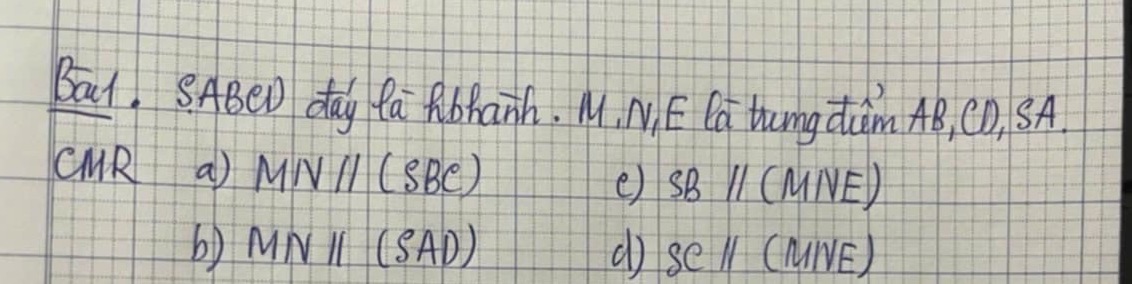 Bài 1. SABCD đáy là hbhành. M, N, E là trung điểm AB, CD, SA.
CMR a) MN // (SBC) c) SB // (MNE)
b) MN // (SAD) d) SC // (MNE)